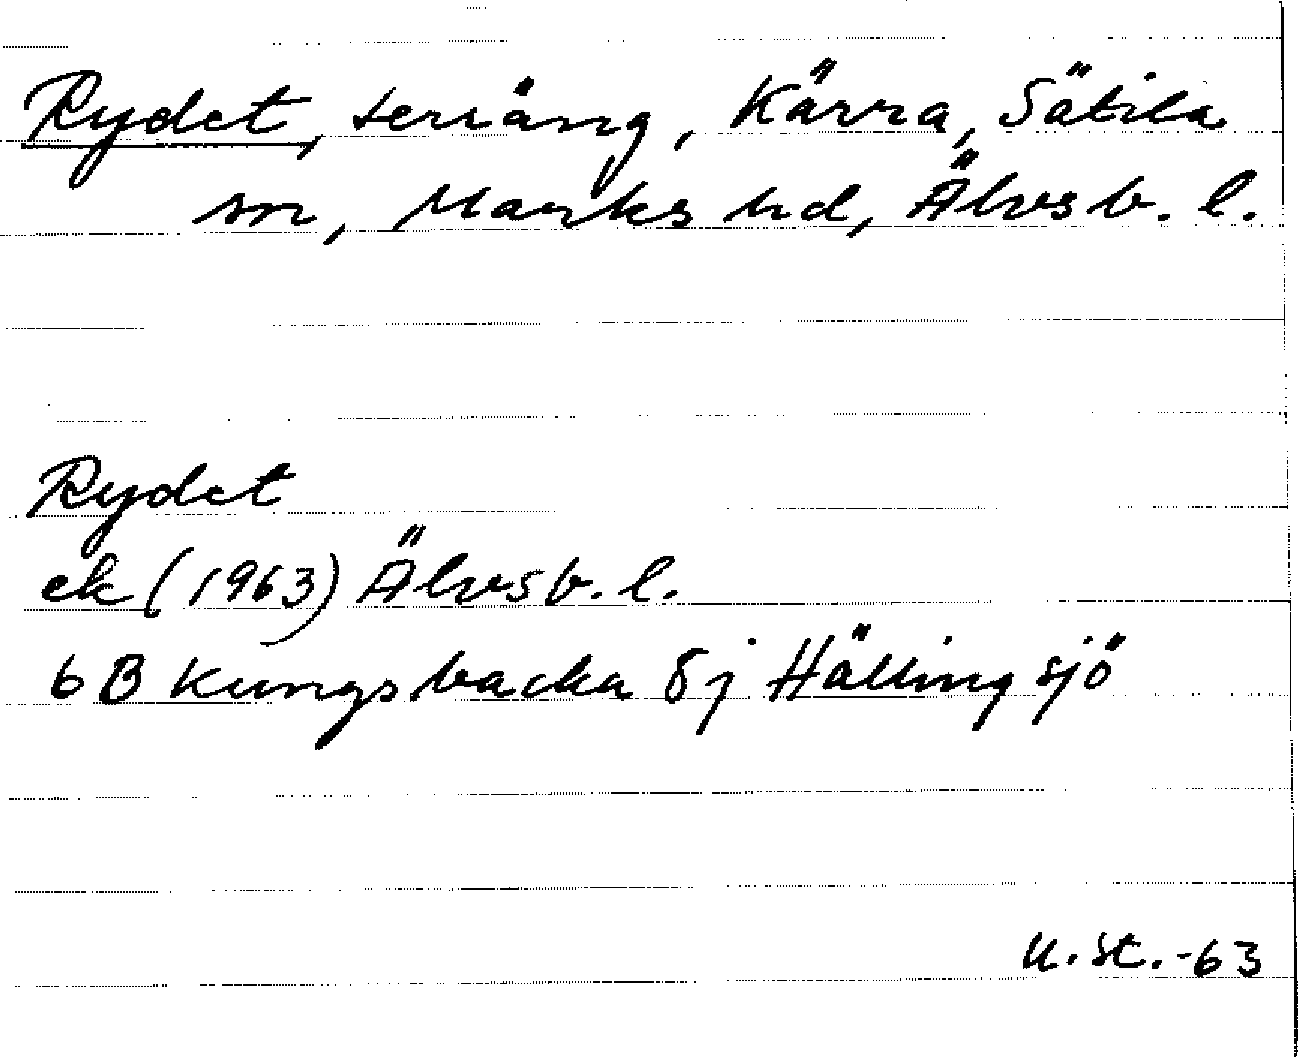 Rydet, terräng, Kärra, Sätila
sn, Marks hd, Älvsb. l.
Rydet
ek (1963) Älvsb. l.
6B Kungsbacka 8j Hällingsjö
U. St. -63